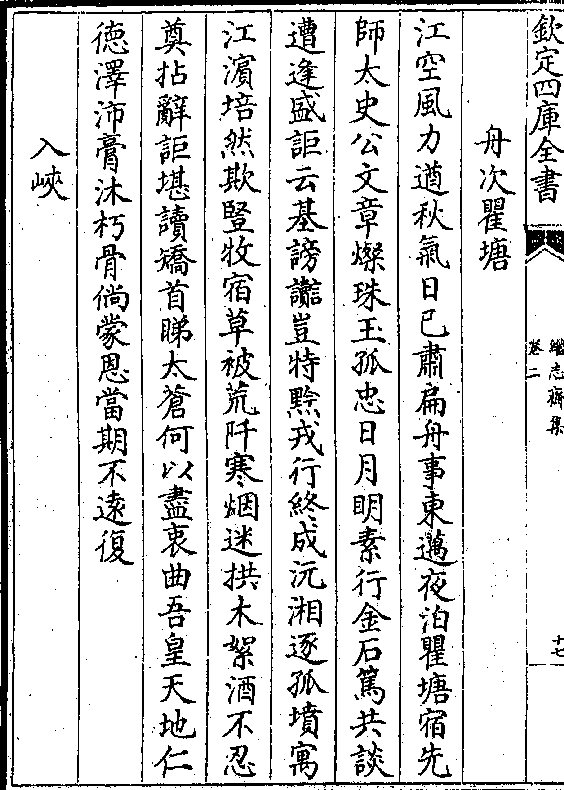 欽定四庫全書
繼志齋集
卷二
十七
舟次瞿塘
江空風力遒秋氣日已肅扁舟事東邁夜泊瞿塘宿先
師太史公文章燦珠玉孤忠日月明素行金石篤共談
遭逢盛詎云基謗讟豈特黥戎行終成沅湘逐孤墳寓
江濵培然欺豎牧宿草被荒阡寒烟迷拱木絮酒不忍
奠拈辭詎堪讀矯首睇太蒼何以盡衷曲吾皇天地仁
徳澤沛膏沐朽骨倘蒙恩當期不逺復
入峽